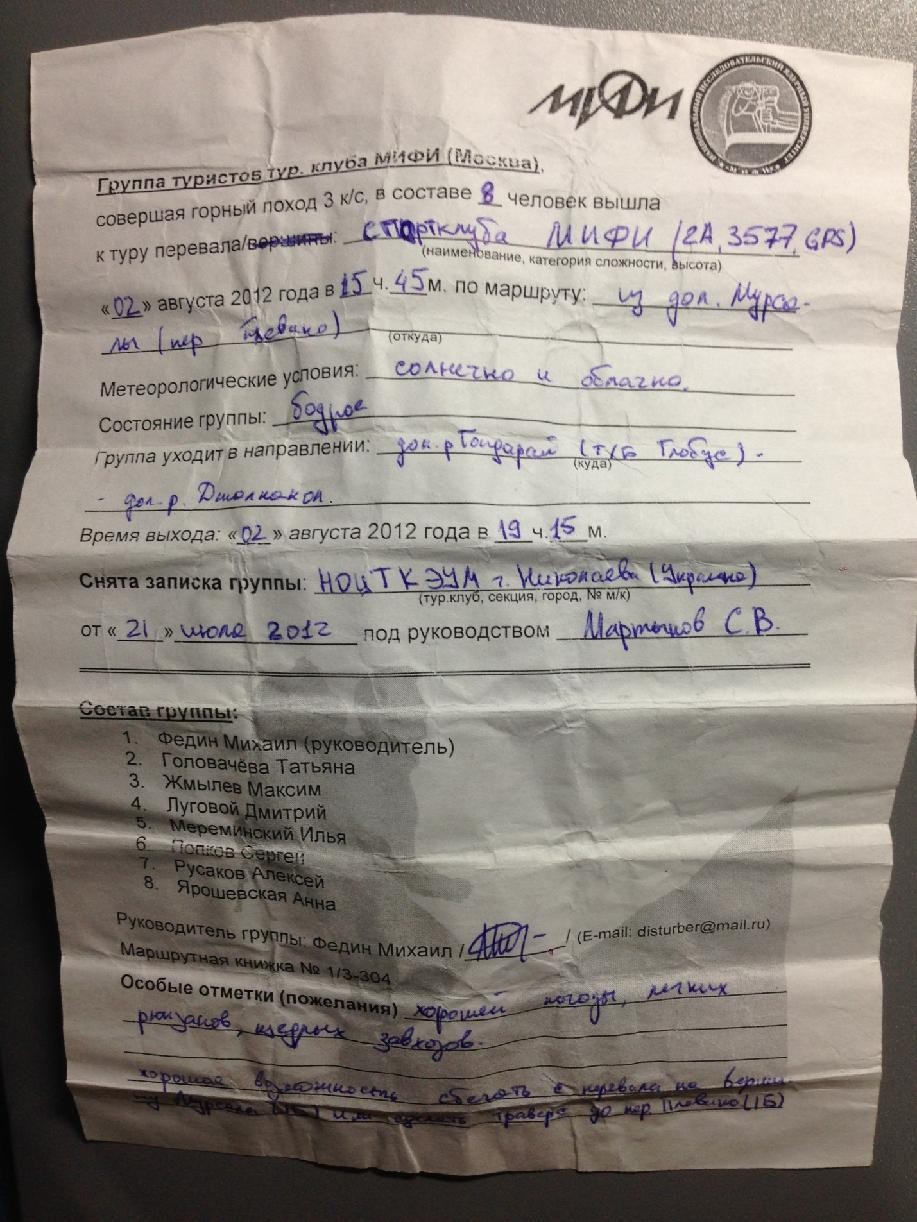 МИФИ
НАЦИОНАЛЬНЫЙ ИССЛЕДОВАТЕЛЬСКИЙ ЯДЕРНЫЙ УНИВЕРСИТЕТ
Группа туристов тур. клуба МИФИ (Москва),
совершая горный поход 3 к/с, в составе 8 человек вышла
к туру перевала/вершины: спортклуба МИФИ (2А, 3577, GPS)
(наименование, категория сложности, высота)
«02» августа 2012 года в 15 ч. 45 м. по маршруту: из дол. Мурса-
лы (пер
(откуда)
Метеорологические условия: солнечно и облачно.
Состояние группы: бодрое
Группа уходит в направлении: дол. р Гондарай (т/б Глобус) -
(куда)
- дол. р.
Время выхода: «02» августа 2012 года в 19 ч. 15 м.
Снята записка группы: НОЦТКЭУМ г. Николаева (Украина)
(тур.клуб, секция, город, № м/к)
от «21» июля 2012 под руководством Мартынов С.В.
Состав группы:
1. Федин Михаил (руководитель)
2. Головачёва Татьяна
3. Жмылев Максим
4. Луговой Дмитрий
5. Мереминский Илья
6. Попков Сергей
7. Русаков Алексей
8. Ярошевская Анна
Руководитель группы: Федин Михаил / / (E-mail: disturber@mail.ru)
Маршрутная книжка № 1/3-304
Особые отметки (пожелания) хорошей погоды, легких
рюкзаков, щедрых завхозов.
хорошая возможность сбегать с перевала на верши-
ну Мурсала (1Б) или сделать траверс до пер. Плевако (1Б)